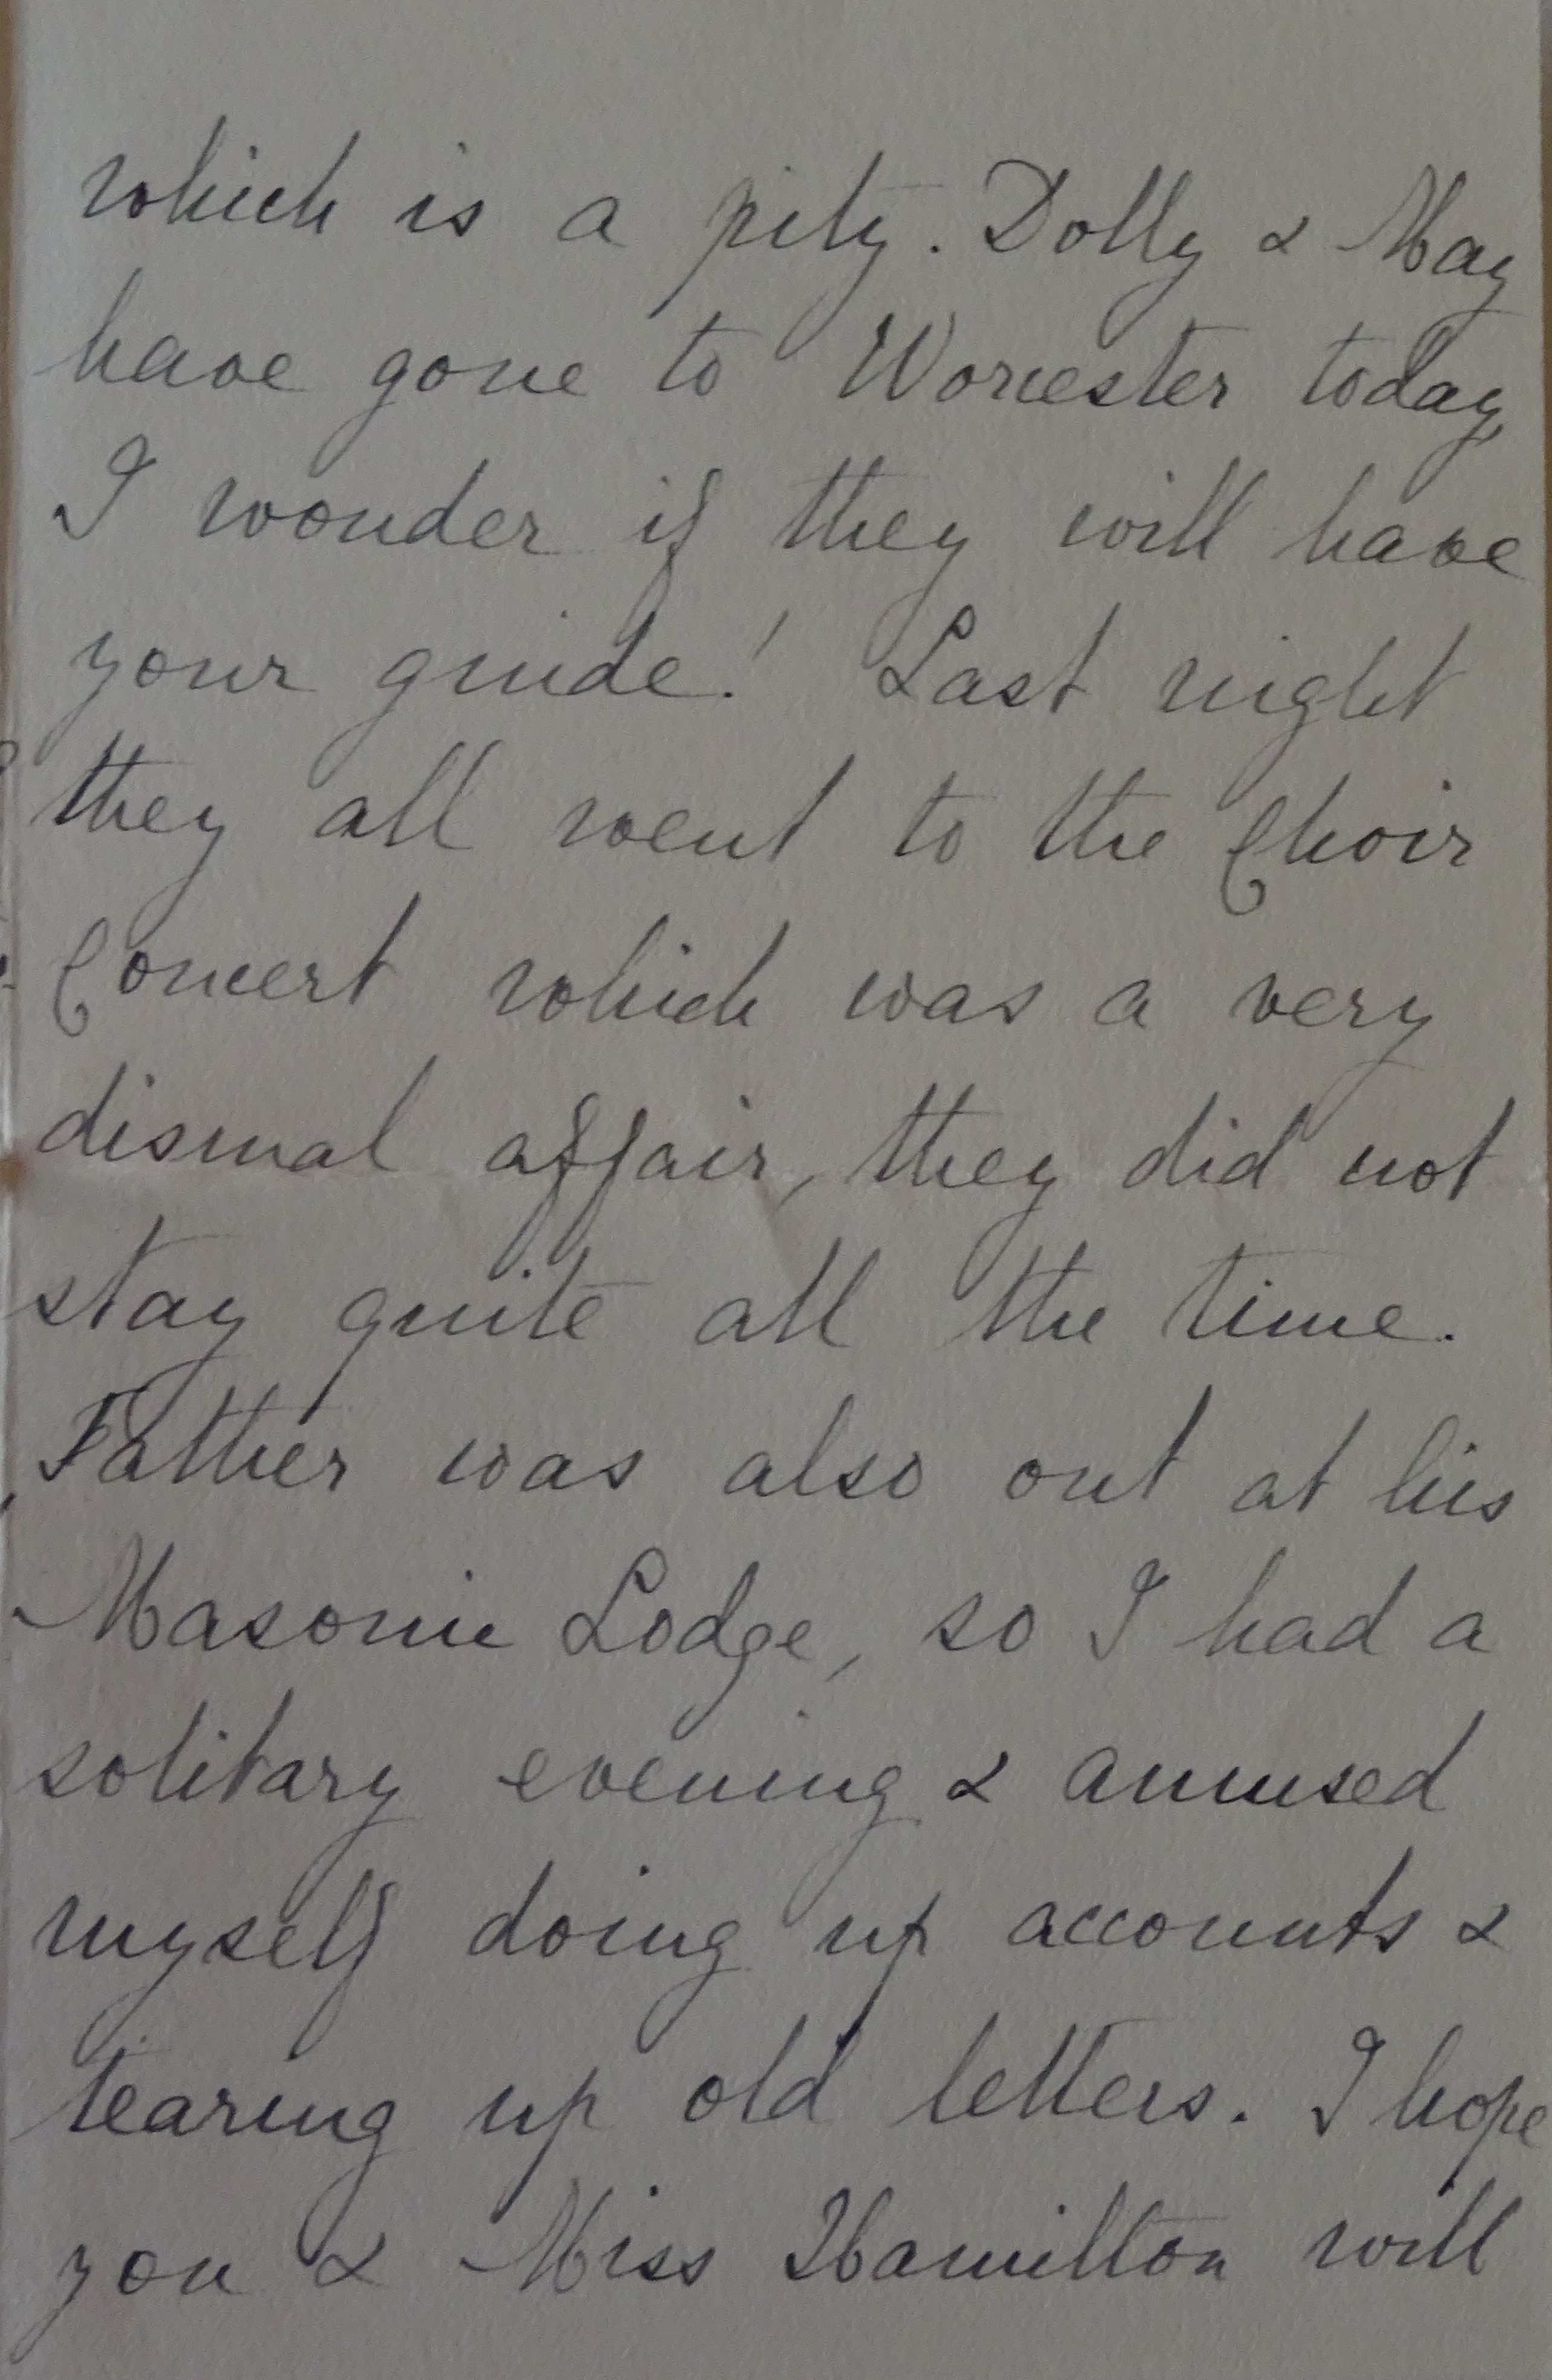 which is a pity. Dolly & May
have gone to Worcester today,
I wonder if they will have
your guide! Last night
they all went to the Choir
Concert which was a very
dismal affair, they did not
stay quite all the time.
Father was also out at his
Masonic Lodge, so I had a
solitary evening & amused
myself doing up accounts &
tearing up old letters. I hope
you & Miss Hamilton will